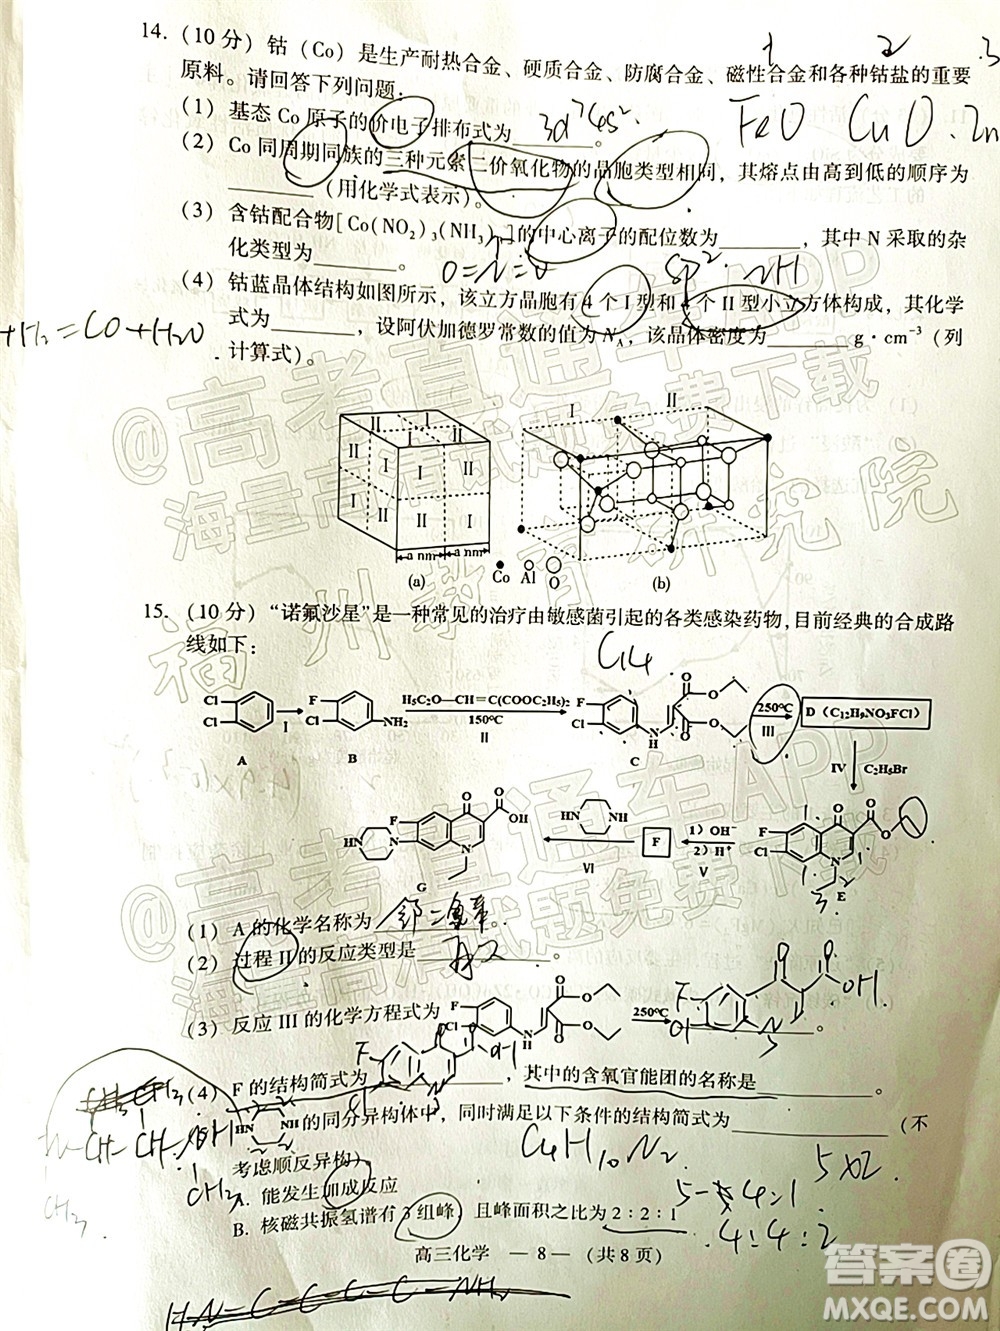 14. (10 分) 钴 (Co) 是生产耐热合金、硬质合金、防腐合金、磁性合金和各种钴盐的重要
1 2 3
原料。请回答下列问题：
FeO CuO
(1) 基态 Co 原子的价电子排布式为 3d⁷4s² 。
(2) Co 同周期同族的三种元素二价氧化物的晶胞类型相同，其熔点由高到低的顺序为
______ (用化学式表示)。
(3) 含钴配合物[Co(NO₂)₃(NH₃)₃]的中心离子的配位数为______，其中 N 采取的杂
化类型为______。
O=N=O sp²
(4) 钴蓝晶体结构如图所示，该立方晶胞有 4 个 I 型和 4 个 II 型小立方体构成，其化学
=CO+H₂O
式为______，设阿伏加德罗常数的值为 Nₐ，该晶体密度为______g·cm⁻³ (列
计算式)。
II I II I II I II I II II I
I II
a nm a nm
(a)
Co Al O
(b)
15. (10 分) “诺氟沙星”是一种常见的治疗由敏感菌引起的各类感染药物，目前经典的合成路
线如下：
Cl Cl A
I
F Cl NH₂ B
H₅C₂O—CH=C(COOC₂H₅)₂
150℃
II
F Cl N H O O O O C
250℃
III
D (C₁₂H₉NO₃FCl)
IV C₂H₅Br
F Cl N O O O E
1) OH⁻
2) H⁺
V
F
HN NH
VI
HN N F N O O OH G
(1) A 的化学名称为 邻二氯苯 。
(2) 过程 II 的反应类型是______。
(3) 反应 III 的化学方程式为
F Cl N H O O O O
250℃
F Cl N O O OH
______。
(4) F 的结构简式为______，其中的含氧官能团的名称是______。
HN NH 的同分异构体中，同时满足以下条件的结构简式为______ (不
C₄H₁₀N₂
考虑顺反异构)
5×2
A. 能发生加成反应
B. 核磁共振氢谱有 3 组峰，且峰面积之比为 2：2：1
4:4:2
高三化学 — 8 — (共 8 页)
答案圈
MXQE.COM
@高考直通车APP
海量高清试题免费下载
福州教育研究院
@高考直通车APP
海量高清试题免费下载